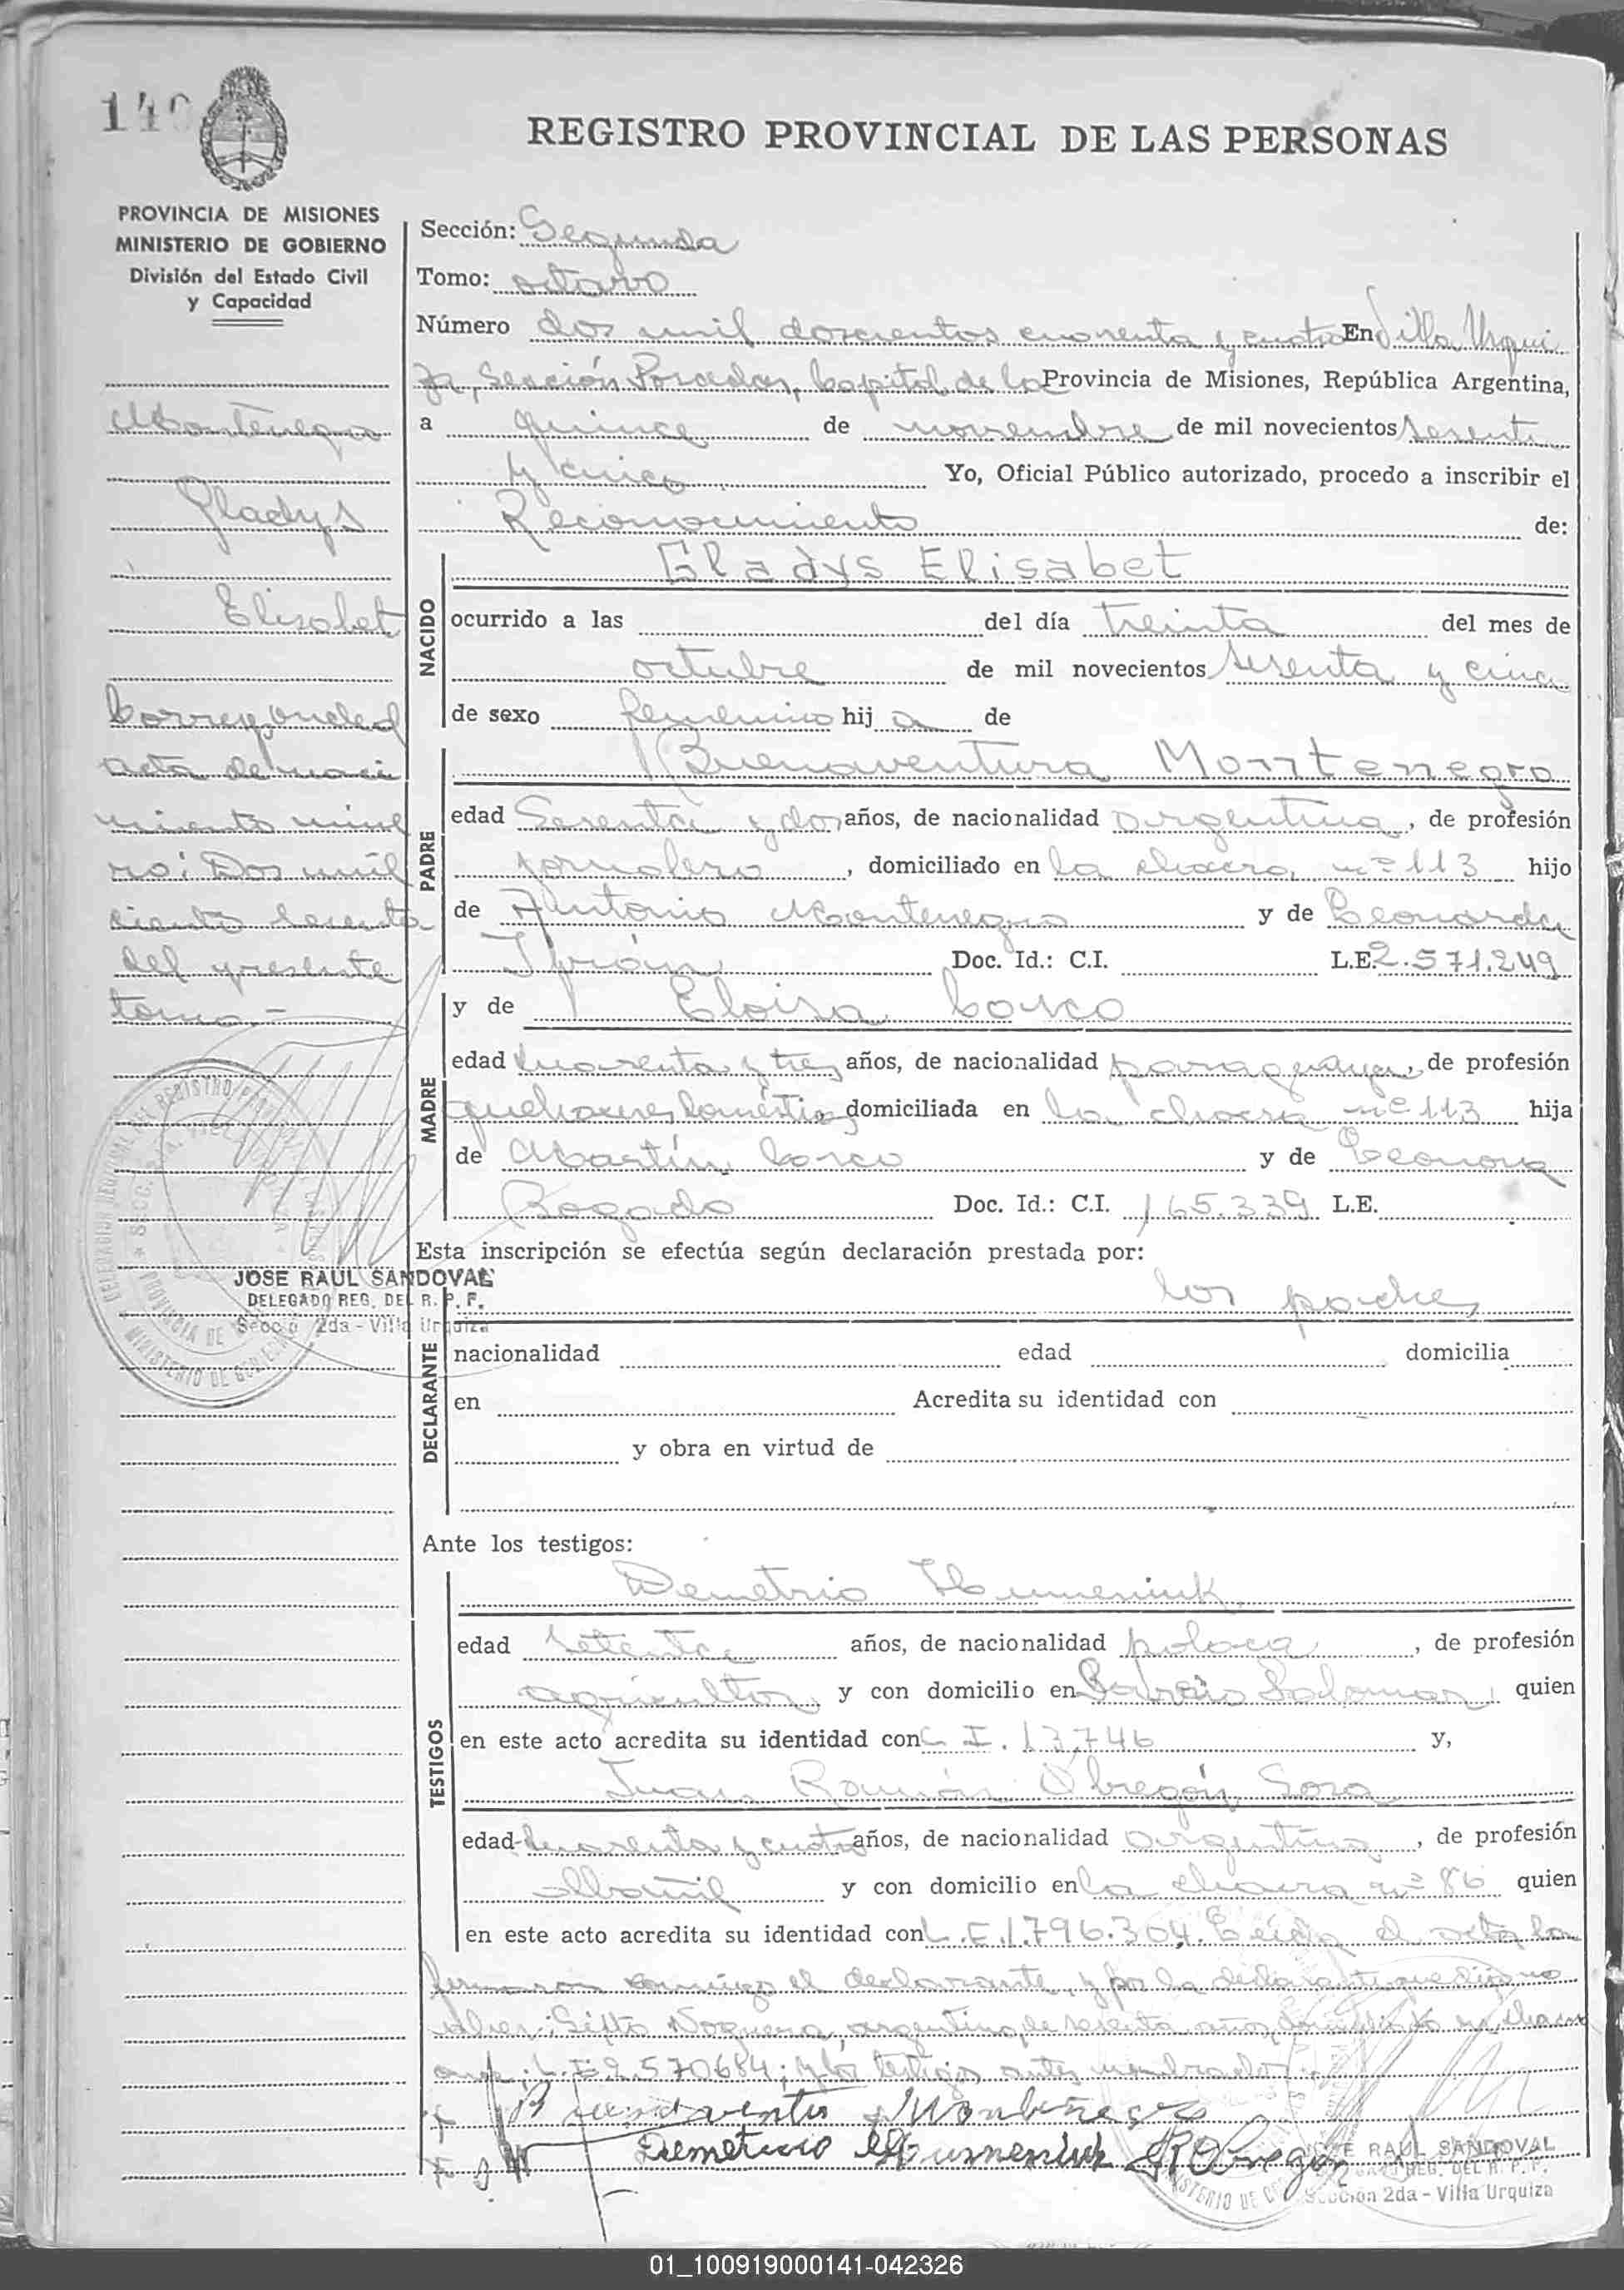 140
REGISTRO PROVINCIAL DE LAS PERSONAS
PROVINCIA DE MISIONES
MINISTERIO DE GOBIERNO
División del Estado Civil
y Capacidad
Montenegro
Gladys
Elisabet
Corresponde al
acta de naci
miento núme
ro: Dos mil
ciento sesenta
del presente
tomo.-
JOSE RAUL SANDOVAL
DELEGADO REG. DEL R. P. P.
Secció 2da - Villa Urquiza
Sección: Segunda
Tomo: octavo
Número dos mil doscientos cuarenta y cuatro En Villa Urqui
za, Sección Posadas, Capital de la Provincia de Misiones, República Argentina,
a quince de noviembre de mil novecientos sesenta
y cinco Yo, Oficial Público autorizado, procedo a inscribir el
Reconocimiento de:
NACIDO
Gladys Elisabet
ocurrido a las del día treinta del mes de
octubre de mil novecientos sesenta y cinco
de sexo femenino hij a de
PADRE
Buenaventura Montenegro
edad Sesenta y dos años, de nacionalidad argentina, de profesión
jornalero, domiciliado en la chacra nº 113 hijo
de Antonio Montenegro y de Leonarda
Doc. Id.: C.I. L.E. 2.571.249
MADRE
y de Eloisa Corco
edad cuarenta y tres años, de nacionalidad paraguaya, de profesión
quehaceres domésticos domiciliada en la chacra nº 113 hija
de Martín Corco y de Leonora
Bogado Doc. Id.: C.I. 165.339 L.E.
Esta inscripción se efectúa según declaración prestada por:
los padres
DECLARANTE
nacionalidad edad domicilia
en Acredita su identidad con
y obra en virtud de
Ante los testigos:
TESTIGOS
Demetrio Humeniuk
edad setenta años, de nacionalidad polaca, de profesión
agricultor, y con domicilio en Barrio Palomar, quien
en este acto acredita su identidad con C. I. 13.746 y,
Juan Ramón Obregón Sosa
edad cuarenta y cuatro años, de nacionalidad argentina, de profesión
albañil y con domicilio en la chacra nº 86 quien
en este acto acredita su identidad con L.E. 1.796.304. Leída el acta la
firmaron conmigo el declarante, y por la declarante que dijo no
saber: Sixto Noguera, argentino, de sesenta años, domiciliado
L.E. 2.570684; y los testigos antes nombrados.
Buenaventura Montenegro
Demetrio Humeniuk JRObregon
JOSE RAUL SANDOVAL
DELEGADO REG. DEL R. P. P.
Sección 2da - Villa Urquiza
01_100919000141-042326